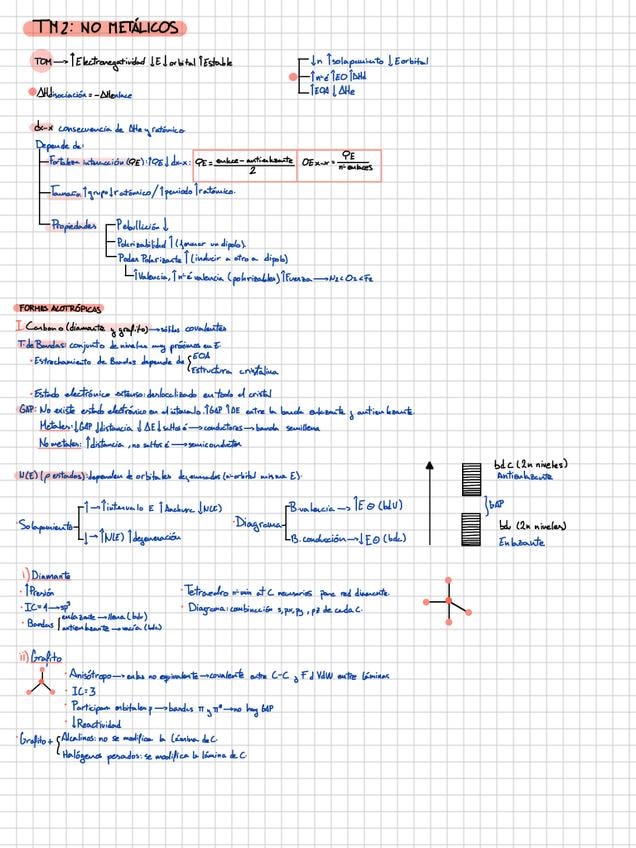 TM2: NO METÁLICOS
TOM → ↑Electronegatividad ↓E↓orbital ↑Estable
↓n ↑solapamiento ↓Eorbital
↑nºé ↑EO ↑ΔHd
↑EOA ↓ΔHe
ΔHdisociación = -ΔHenlace
dx-x consecuencia de ΔHe y ratómico
Depende de:
Fortaleza interacción (QE): ↑QE↓dx-x: QE = enlace - antienlazante / 2 OEx-x = QE / nºenlaces
Tamaño: ↑grupo↓ratómico / ↑periodo ↑ratómico.
Propiedades
Pebullición ↓
Polarizabilidad ↑ (generar un dipolo).
Poder Polarizante ↑ (inducir a otro a dipolo)
↑Valencia, ↑nºé valencia (polarizables) ↑Fuerza → N2<O2<F2
FORMAS ALOTRÓPICAS
I. Carbono (diamante y grafito) → sólidos covalentes
T. de Bandas: conjunto de niveles muy próximos en E
· Estrechamiento de Bandas depende de { EOA
Estructura cristalina
· Estado electrónico extenso: deslocalizado en todo el cristal
GAP: No existe estado electrónico en el intervalo. ↑GAP ↑ΔE entre la banda enlazante y antienlazante.
Metales: ↓GAP ↓distancia ↓ΔE ↓saltos é → conductores → banda semillena
No metales: ↑distancia, no saltos é → semiconductor
N(E) (ρ estados): dependen de orbitales degenerados (nºorbital misma E).
· Solapamiento
↑ → ↑intervalo E ↑Anchura ↓N(E)
↓ → ↑N(E) ↑degeneración
· Diagrama
B. valencia → ↑E⊖ (bdV)
B. conducción → ↓E⊖ (bdc)
bdc (2n niveles)
Antienlazante
GAP
bdv (2n niveles)
Enlazante
i) Diamante
· ↑Presión
· IC=4 → sp³
· Bandas { enlazante → llena (bdv)
antienlazante → vacía (bdc)
· Tetraedro nºmin at C necesarios para red diamante.
· Diagrama: combinación s, px, py, pz de cada C.
ii) Grafito
· Anisótropo → enlaces no equivalente → covalente entre C-C y F d VdW entre láminas
· IC=3
· Participan orbitales p → bandas π y π* → no hay GAP
· ↓Reactividad
· Grafito + { Alcalinos: no se modifica la lámina de C.
Halógenos pesados: se modifica la lámina de C.